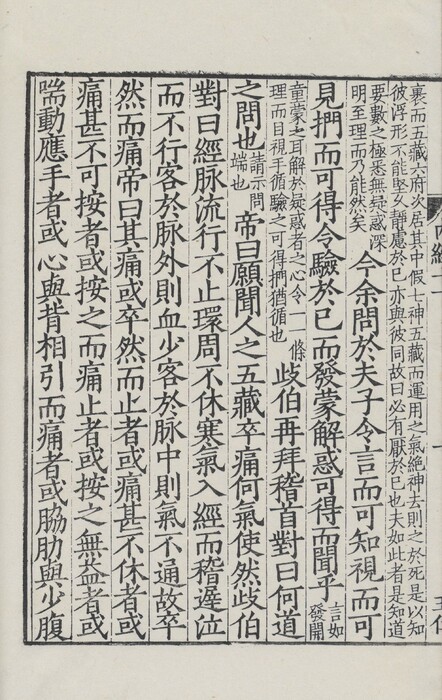 裹而五藏六府次居其中假七神五藏而運用之氣絶神去則之於死是以知
彼浮形不能堅久靜慮於已亦與彼同故曰必有厭於已也夫如此者是知道
要數之極悉無疑惑深明至理而乃能然矣今余問於夫子令言而可知視而可
見捫而可得令驗於已而發蒙解惑可得而聞乎言如發開
童蒙之耳解於疑惑者之心令一一條理而目視手循驗之可得捫猶循也歧伯再拜稽首對曰何道
之問也請示問端也帝曰願聞人之五藏卒痛何氣使然歧伯
對曰經脉流行不止環周不休寒氣入經而稽遲泣
而不行客於脉外則血少客於脉中則氣不通故卒
然而痛帝曰其痛或卒然而止者或痛甚不休者或
痛甚不可按者或按之而痛止者或按之無益者或
喘動應手者或心與背相引而痛者或脇肋與少腹